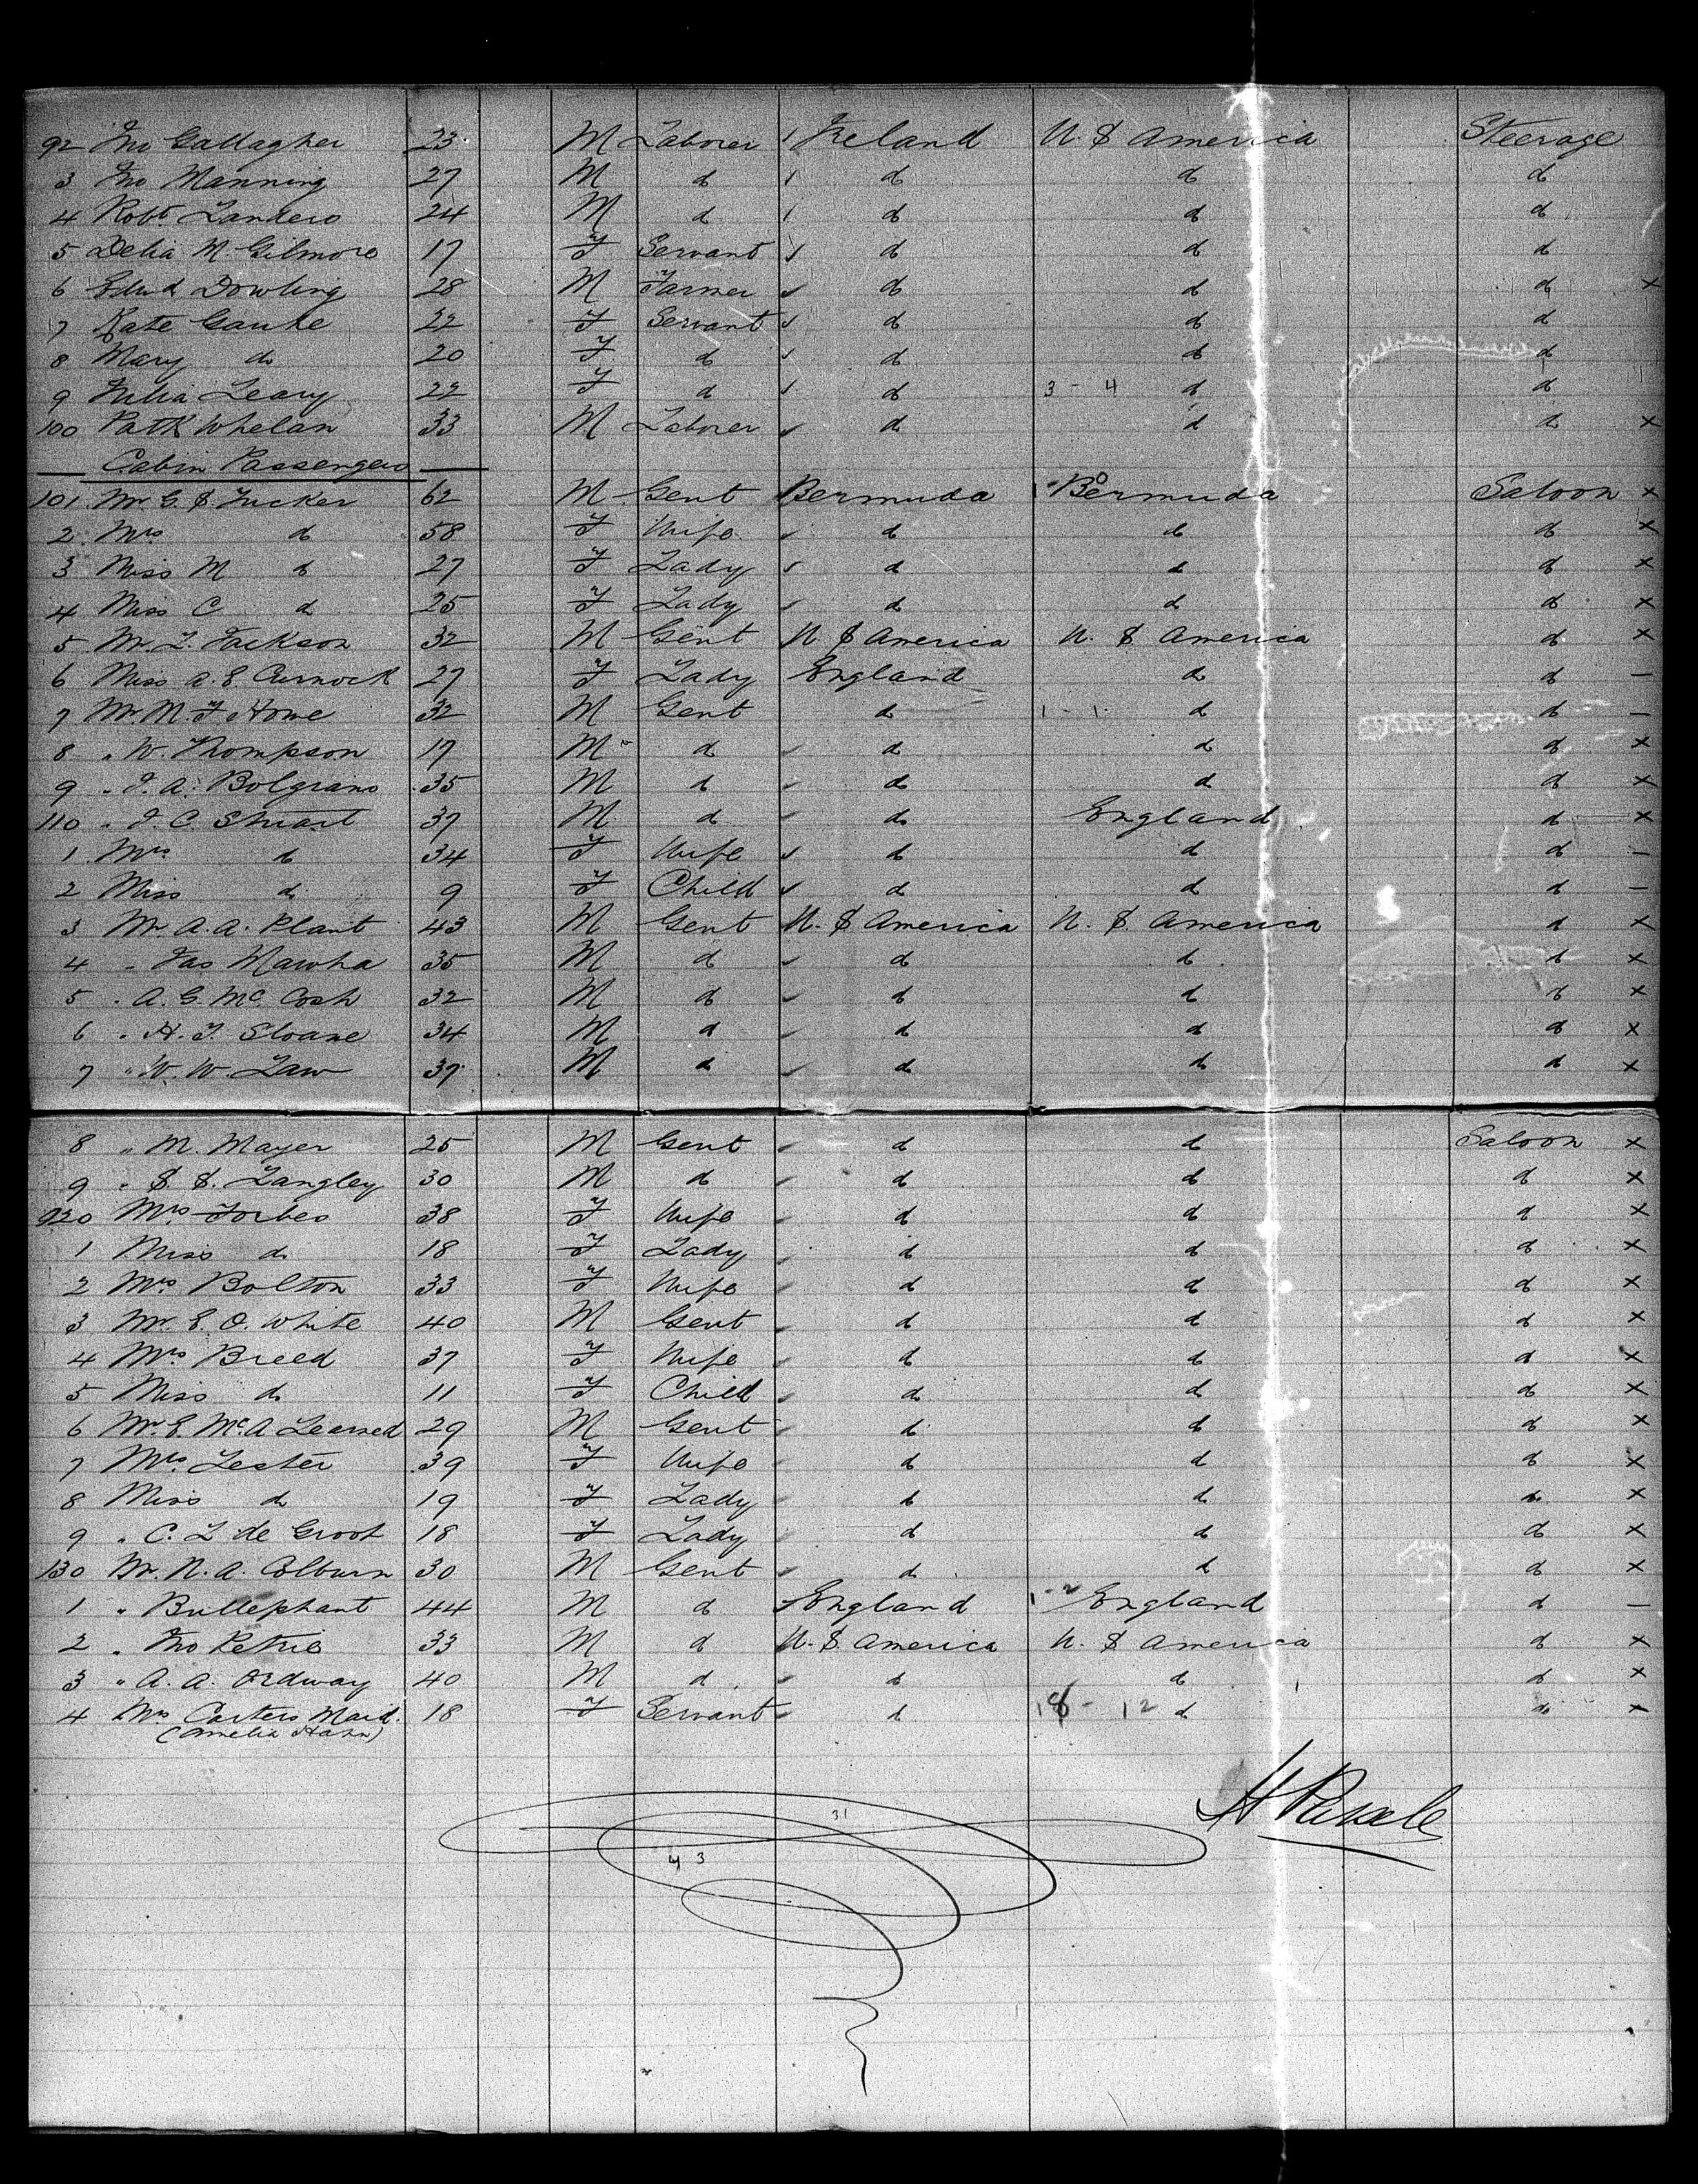 92 Jno Gallagher 23 M Laborer Ireland U. S America Steerage
3 Jno Manning 27 M do do do do
4 Robt. Landers 24 M do do do do
5 Delia M. Gilmore 17 F Servant do do do
6 Edwd Dowling 28 M Farmer do do do x
7 Kate 22 F Servant do do do
8 Mary do 20 F do do do do
9 Julia Leary 22 F do do 3 - 4 do do
100 Patk Whelan 33 M Laborer do do do x
Cabin Passengers
101 Mr. G. S. Tucker 62 M Gent Bermuda Bermuda Saloon x
2 Mrs do 58 F Wife do do do x
3 Miss M do 27 F Lady do do do x
4 Miss C do 25 F Lady do do do x
5 Mr. L. Jackson 32 M Gent U S America U. S America do x
6 Miss A. E. Curnock 27 F Lady England do do –
7 Mr. M. F Howe 32 M Gent do 1 - 1 do do –
8 " W. Thompson 17 M do do do do x
9 " J. A. Bolgiano 35 M do do do do x
110 " J. C. Stuart 37 M do do England do x
1 Mrs do 34 F Wife do do do –
2 Miss do 9 F Child do do do –
3 Mr. A. A. Plant 43 M Gent U. S America U. S. America do x
4 " Jas 35 M do do do do x
5 " A. G. Mc. Cosh 32 M do do do do x
6 " H. T. Sloane 34 M do do do do x
7 " W. W. Law 37 M do do do do x
8 " M. Mayer 25 M Gent do do Saloon x
9 " S. S. Langley 30 M do do do do x
120 Mrs. Forbes 38 F Wife do do do x
1 Miss do 18 F Lady do do do x
2 Mrs Bolton 33 F Wife do do do x
3 Mr. E. O. White 40 M Gent do do do x
4 Mrs. Breed 37 F Wife do do do x
5 Miss do 11 F Child do do do x
6 Mr. E. Mc. A Learned 29 M Gent do do do x
7 Mrs. Lester 39 F Wife do do do x
8 Miss do 19 F Lady do do do x
9 " C. L de Groot 18 F Lady do do do x
130 Mr. N. A. Colburn 30 M Gent do do do x
1 " Bullephant 44 M do England England do –
2 " Jno Petrie 33 M do U. S. America U. S America do x
3 " A. A. Ordway 40 M do do do do x
4 Mrs Carters Maid. 18 F Servant do 18 - 12 do do x
(Amelia Hahn)
31
43